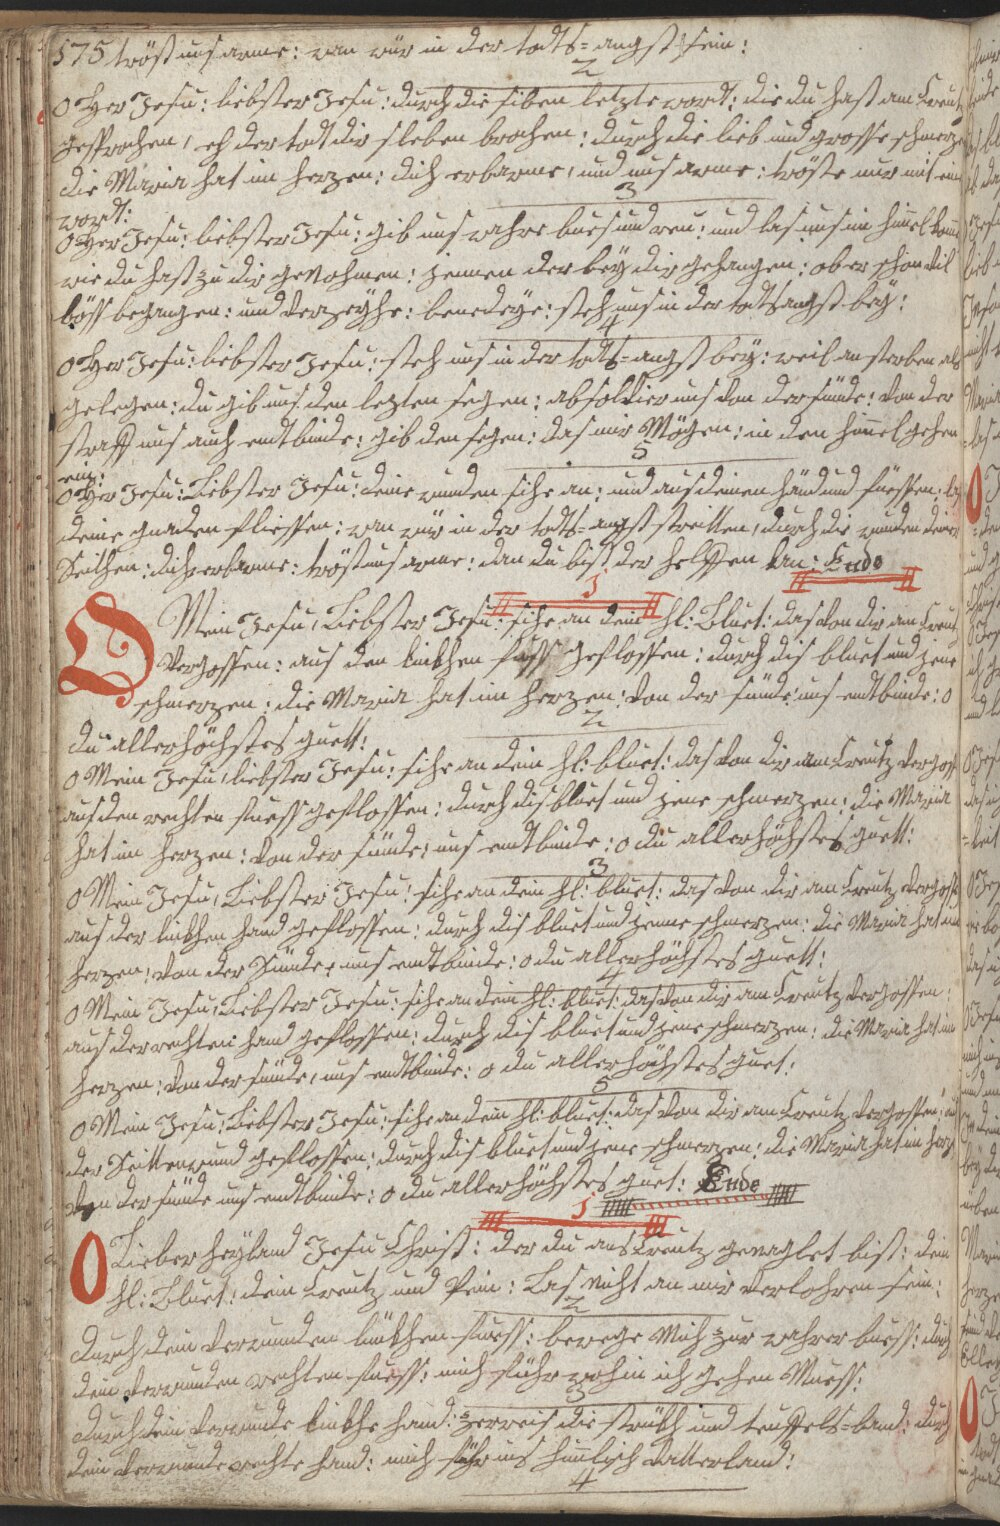 575 tröst uns arme: wan wür in der todts=angst sein:
2
O Her Jesu: liebster Jesu: durch die siben letzte wordt: die du hast am Creutz
gesprochen, eh der todt dir s leben brochen: durch die lieb und grosse schmerzen
die Maria hat im herzen: dich erbarme, und uns arme: tröste nur mit ein
wordt:
3
O Her Jesu: liebster Jesu: gib uns wahre bues und reu: und las uns in himel komen
wie du hast zu dir genohmen: jennen der bey dir gehangen: ob er schon vil
böss begangen: und verzeyhe: benedeye: steh uns in der todtsangst bey:
4
O Her Jesu: liebster Jesu: steh uns in der todts=angst bey: weil an sterben als
gelegen: du gib uns den lezten segen: absolvier uns von der sünde: von der
straff uns auch endtbinde: gib den segen: das mir Mögen: in den himel gehen
ein:
5
O Her Jesu: Liebster Jesu: deine wunden sihe an: und aus deinen händ und füessen: las
deine gnaden fliessen: wan wür in der todts=angst streitten, durch die wunden deiner
Seithen: dich erbarme: tröst uns arme: dan du bist der helffen kan: Ende
1
O Mein Jesu, Liebster Jesu: sihe an dein hl: Bluet: das von dir am Creutz
vergossen: aus den linkhen fuss geflossen: durch dis bluet und jene
schmerzen: die Maria hat im herzen: von der sünde: uns endtbinde: o
du allerhöchstes guett:
2
O Mein Jesu, liebster Jesu: sihe an dein hl: bluet: das von dir am Creutz vergossen
aus den rechten fuess geflossen: durch dis bluet und jene schmerzen: die Maria
hat im herzen: von der sünde: uns endtbinde: o du allerhöchstes guett:
3
O Mein Jesu, Liebster Jesu: sihe an dein hl: bluet: das von dir am Creutz vergossen
aus der linkhen hand geflossen: durch dis bluet und jenne schmerzen: die Maria hat im
herzen: von der Sünde: uns endtbinde: o du allerhöchstes guett:
4
O Mein Jesu, Liebster Jesu: sihe an dein hl: bluet: das von dir am Creutz vergossen:
aus der rechten hand geflossen: durch dis bluet und jene schmerzen: die Maria hat im
herzen: von der sünde, uns endtbinde: o du allerhöchstes guet:
5
O Mein Jesu: Liebster Jesu: sihe an dein hl: bluet: das von dir am Creutz vergossen: aus
der Seitten wund geflossen: durch dis bluet und jene schmerzen: die Maria hat im herz
von der sünde uns endtbinde: o du allerhöchstes guet: Ende
1
O Lieber heyland Jesu Christ: der du ans Creutz genaglet bist: dein
hl: Bluet: dein Creutz und Pein: Las nicht an mir verlohren sein:
2
durch dein verwunden linkhen fuess: bewege Mich zur wahrer buess: durch
dein verwunden rechten fuess: mich führ wohin ich gehen Muess:
3
durch dein verwunde linkhe hand: zerreis die strükh und teuffels=band: durch
dein verwunde rechte hand: mich führ ins himlisch vatterland:
4